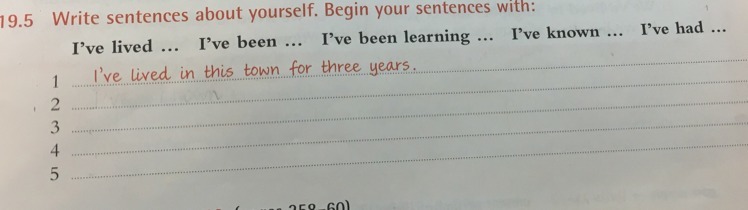 19.5 Write sentences about yourself. Begin your sentences with:
I've lived ... I've been ... I've been learning ... I've known ... I've had ...
1 I've lived in this town for three years.
2
3
4
5
258–60)